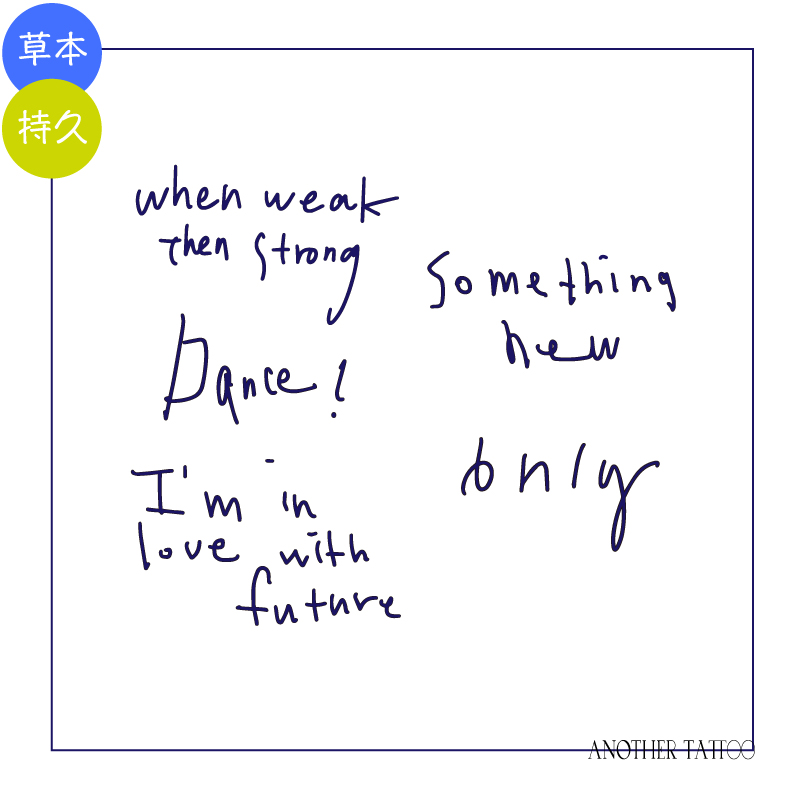 草本
持久
when weak
then strong
Dance!
I'm in
love with
future
something
new
only
ANOTHER TATTOO